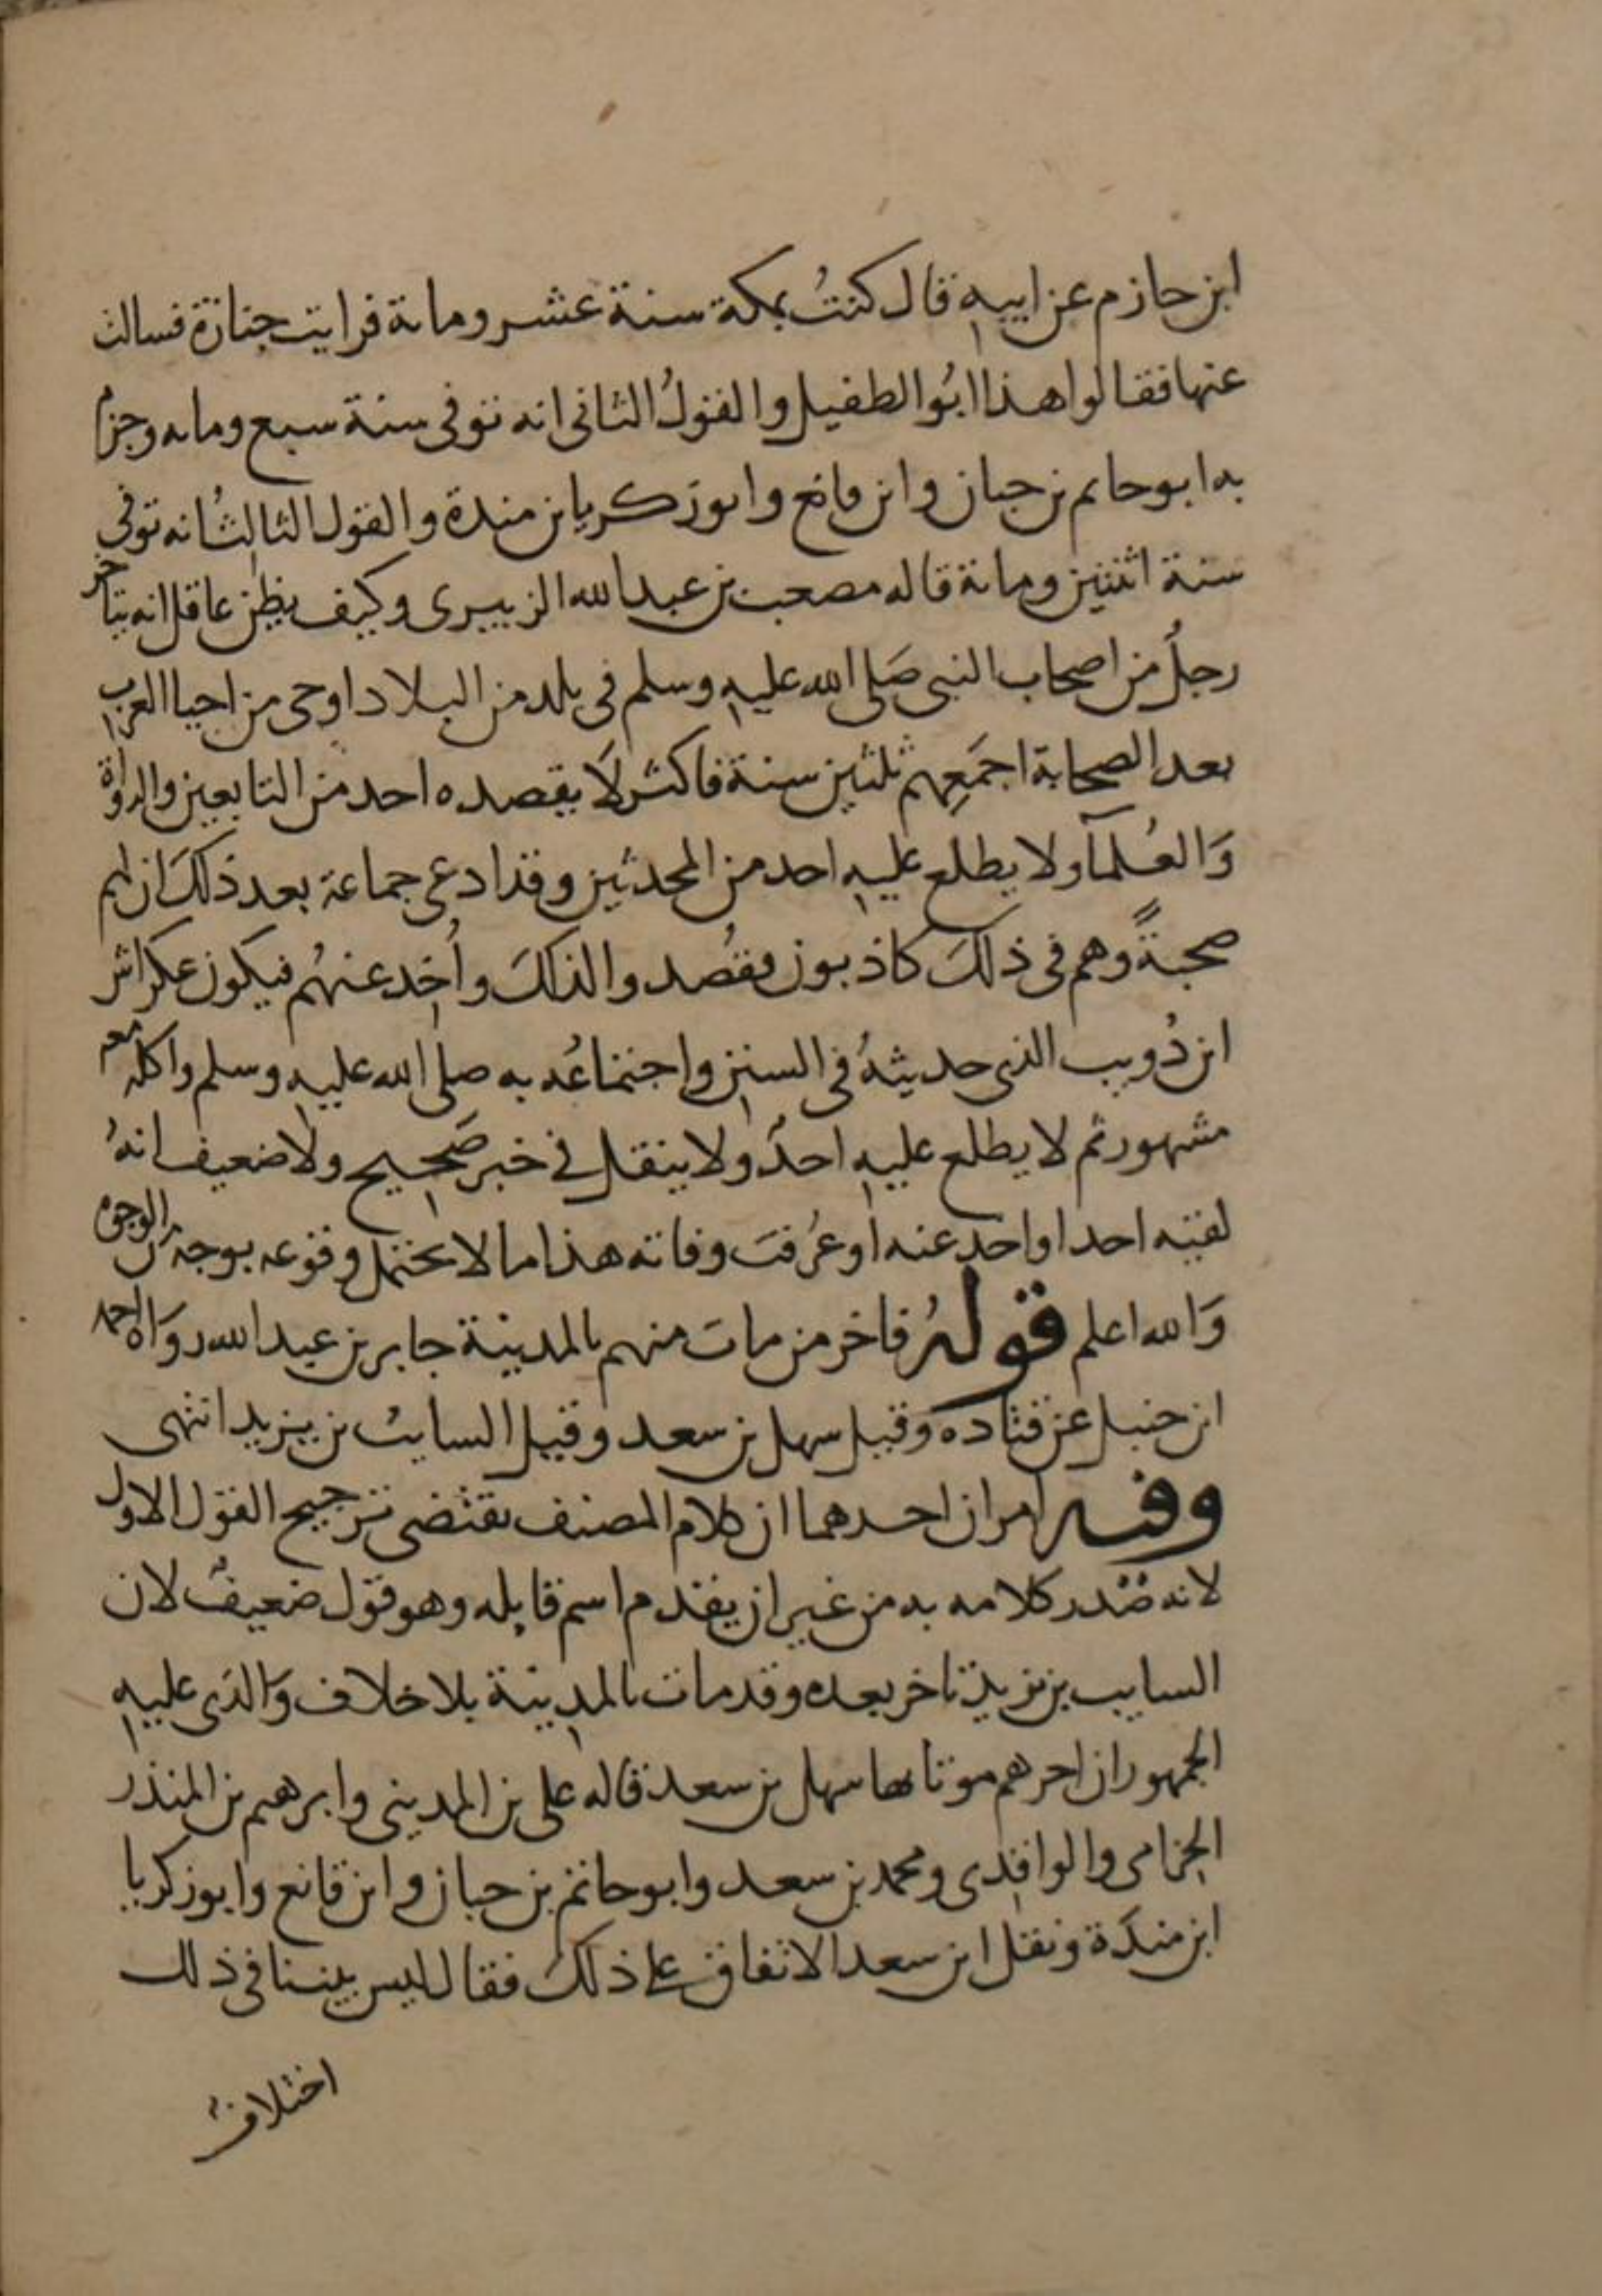 ابن حازم عن ابيه قال كنتُ بمكة سنة عشر ومائة فرايت جنازة فسالت
عنها فقالوا هذا ابُو الطفيل والقولُ الثانى انه توفى سنة سبع ومايه وجزم
به ابو حاتم بن حبان وابن قانع وابو زكريا بن مندة والقول الثالثُ انه توفى
سنة اثنتين ومائة قاله مصعب بن عبد الله الزبيرى وكيف يظن عاقل انه يتاخر
رجلٌ من اصحاب النبى صَلى الله عليه وسلم فى بلد من البلاد اوحى من احيا العرب
بعد الصحابة اجمَعِهم ثلثين سنة فاكثر لَا يقصده احد من التابعين والرواة
وَالعُلمآ ولا يطلع عليه احد من المحدثين وقد ادعى جماعة بعد ذلكَ ان لهم
صحبةً وهم فى ذلكَ كاذبون فقُصدوا لذلكَ واُخِد عنهُم فيكون عكراش
ابن ذُويب الذى حديثهُ فى السنن واجتماعُه به صلى الله عليه وسلم واكله معه
مشهور ثم لا يطلع عليه احدٌ ولا ينقل فى خبر صَحيح ولا ضعيف انهُ
لقيَه احد او اخذ عنه او عُرفت وفاته هذا ما لا يحتمل وقوعه بوجه من الوجوه
وَالله اعلم قولهُ فاخر من مات منهم بالمدينة جابر بن عبد الله روَاهُ احمد
ابن حنبل عن قتادة وقيل سهل بن سعد وقيل السايب بن يزيد انتهى
وفيه امران احدهما ان كلام المصنف يقتضى ترجيح القول الاول
لانه صَدر كلامه به من غير ان يقدم اسم قايله وهو قول ضعيفٌ لان
السايب بن يزيد تاخر بعده وقد مات بالمدينة بلا خلاف وَالذى عليه
الجمهور ان اخرهم موتا بها سهل بن سعد قاله على بن المدينى وابرهيم بن المنذر
الحِزامى والواقدى ومحمد بن سعد وابو حاتم بن حبان وابن قانع وابو زكريا
ابن مندَة ونقل ابن سعد الاتفاق على ذلكَ فقال ليس بيننا فى ذلك
اختلافٌ